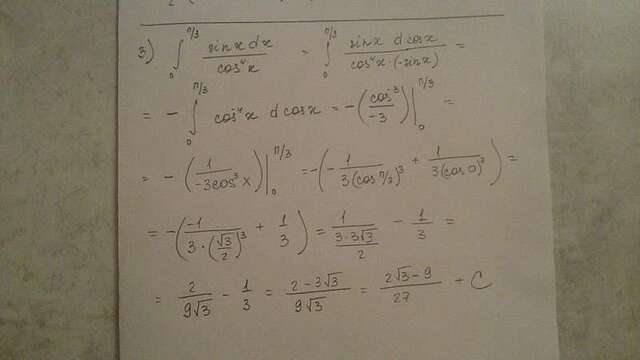 3) ∫₀^π/3 sinx dx / cos⁴x = ∫₀^π/3 sinx dcosx / cos⁴x·(-sinx) =
= - ∫₀^π/3 cos⁻⁴x dcosx = -(cos⁻³ / -3)|₀^π/3 =
= - (1 / -3cos³x)|₀^π/3 = -(- 1 / 3(cos π/3)³ + 1 / 3(cos 0)³) =
= -(-1 / 3·(√3/2)³ + 1/3) = 1 / (3·3√3 / 2) - 1/3 =
= 2 / 9√3 - 1/3 = 2-3√3 / 9√3 = 2√3-9 / 27 + C